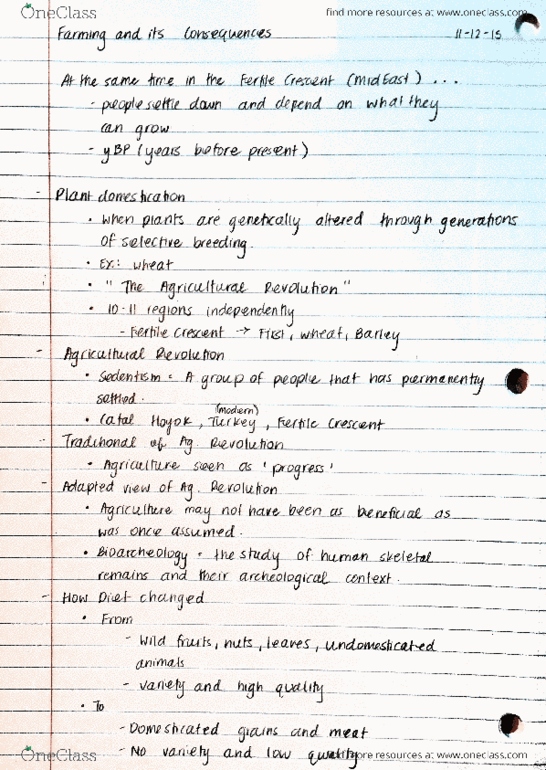 OneClass
find more resources at www.oneclass.com
Farming and its Consequences
11-12-15
At the same time in the Fertile Crescent (mid East) ...
- people settle down and depend on what they
can grow
- yBP (years before present)
- Plant domestication
• When plants are genetically altered through generations
of selective breeding.
• Ex: wheat
• "The Agricultural Revolution"
• 10-11 regions independently
- Fertile Crescent → First, wheat, Barley
- Agricultural Revolution
• Sedentism = A group of people that has permanently
settled.
(modern)
• Catal Hoyok, Turkey, Fertile Crescent
- Traditional of Ag. Revolution
• Agriculture seen as 'progress'
- Adapted view of Ag. Revolution
• Agriculture may not have been as beneficial as
was once assumed.
• Bioarcheology = the study of human skeletal
remains and their archeological context.
- How Diet changed
• From
- Wild fruits, nuts, leaves, undomesticated
animals
- variety and high quality
• To
- Domesticated grains and meat
- No variety and low quality
OneClass
more resources at www.oneclass.com